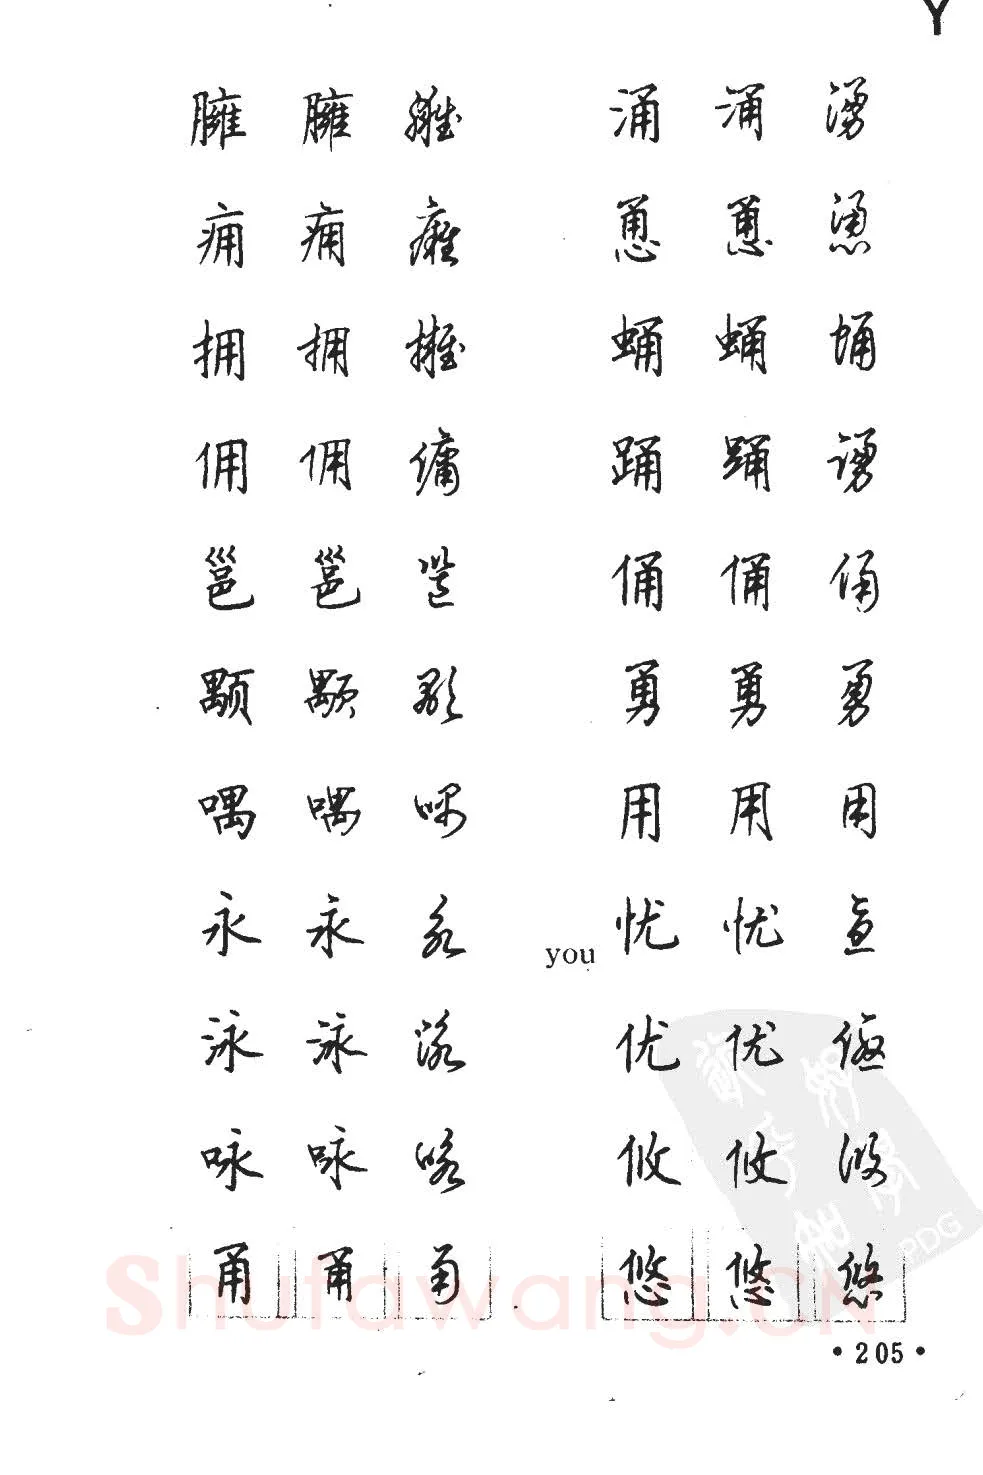 Y
臃 臃 臃 涌 涌 湧
痈 痈 癰 恿 恿 恿
拥 拥 擁 蛹 蛹 蛹
佣 佣 傭 踊 踊 踴
邕 邕 邕 俑 俑 俑
颙 颙 顒 勇 勇 勇
喁 喁 喁 用 用 用
永 永 永 you 忧 忧 憂
泳 泳 泳 优 优 優
咏 咏 咏 攸 攸 攸
甬 甬 甬 悠 悠 悠
PDG
Shufawang.CN
·205·